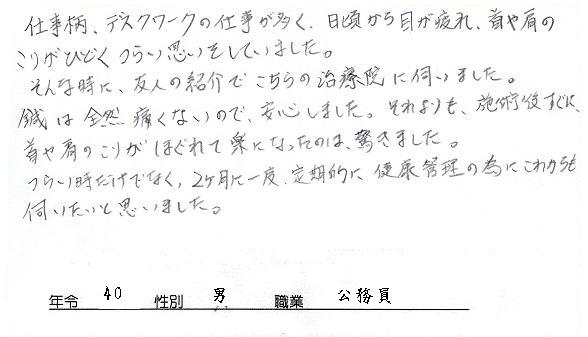 仕事柄、デスクワークの仕事が多く、日頃から目が疲れ、首や肩の
こりがひどくつらい思いをしていました。
そんな時に、友人の紹介でこちらの治療院に伺いました。
鍼は全然痛くないので、安心しました。それよりも、施術後すぐに、
首や肩のこりがほぐれて楽になったのは、驚きました。
つらい時だけでなく、2ヶ月に一度、定期的に健康管理の為にこれからも
伺いたいと思いました。
年令 40 性別 男 職業 公務員